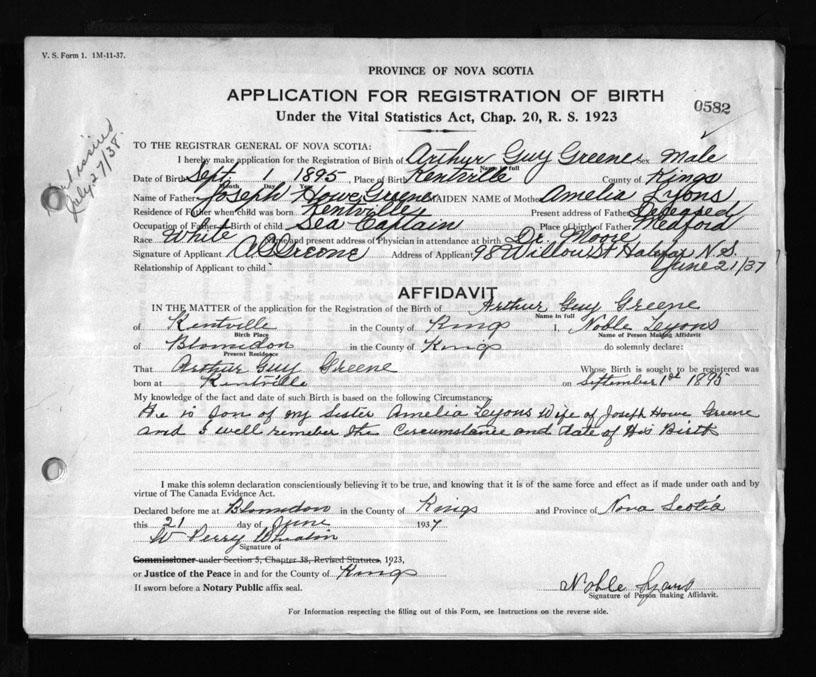 V. S. Form 1. 1M-11-37.
PROVINCE OF NOVA SCOTIA
APPLICATION FOR REGISTRATION OF BIRTH
0582
Under the Vital Statistics Act, Chap. 20, R. S. 1923
issued July 27/38.
TO THE REGISTRAR GENERAL OF NOVA SCOTIA:
I hereby make application for the Registration of Birth of Arthur Guy Greene Sex Male
Name in full
Date of Birth Sept. 1 1895 Place of Birth Kentville County of Kings
Month Day
Name of Father Joseph Howe Greene MAIDEN NAME of Mother Amelia Lyons
Residence of Father when child was born Kentville Present address of Father Deceased
Occupation of Father Birth of child Sea Captain Place of birth of Father Medford
Race White Name and present address of Physician in attendance at birth Dr. Moore
Signature of Applicant A G Greene Address of Applicant 98 Willow St Halifax N.S.
Relationship of Applicant to child June 21/37
AFFIDAVIT
IN THE MATTER of the application for the Registration of the Birth of Arthur Guy Greene
Name in full
of Kentville in the County of Kings I, Noble Lyons
Birth Place Name of Person Making Affidavit
of Blomidon in the County of Kings do solemnly declare:
Present Residence
That Arthur Guy Greene Whose Birth is sought to be registered was
born at Kentville on September 1st 1895
My knowledge of the fact and date of such Birth is based on the following Circumstances:
He is Son of my Sister Amelia Lyons Wife of Joseph Howe Greene
and I well remeber the Circumstance and date of His Birth
I make this solemn declaration conscientiously believing it to be true, and knowing that it is of the same force and effect as if made under oath and by
virtue of The Canada Evidence Act.
Declared before me at Blomidon in the County of Kings and Province of Nova Scotia
this 21 day of June 1937
W Perry
Signature of
Commissioner under Section 5, Chapter 38, Revised Statutes, 1923,
or Justice of the Peace in and for the County of Kings
If sworn before a Notary Public affix seal.
Noble Lyons
Signature of Person making Affidavit.
For Information respecting the filling out of this Form, see Instructions on the reverse side.